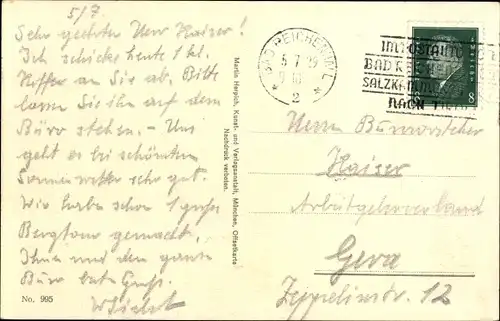 5/7.
Sehr geehrter Herr Kaiser!
Ich schicke heute 1 kl.
Koffer an Sie ab. Bitte
lassen Sie ihn auf dem
Büro stehen. - Uns
geht es bei schönstem
Sonnenwetter sehr gut.
Wir haben schon 1 große
Bergtour gemacht.
Ihnen und dem ganzen
Büro Gruß.
No. 995
Martin Herpich, Kunst- und Verlagsanstalt, München, Offsetkarte
Nachdruck verboten.
BAD REICHENHALL
5.7.29
2
IM POSTAUTO
BAD REICHENH
SALZKAMMERGUT
NACH TIROL
8
Herrn Bürovorsteher
Kaiser
Arbeitgeberverband
Gera
Zeppelinstr. 12